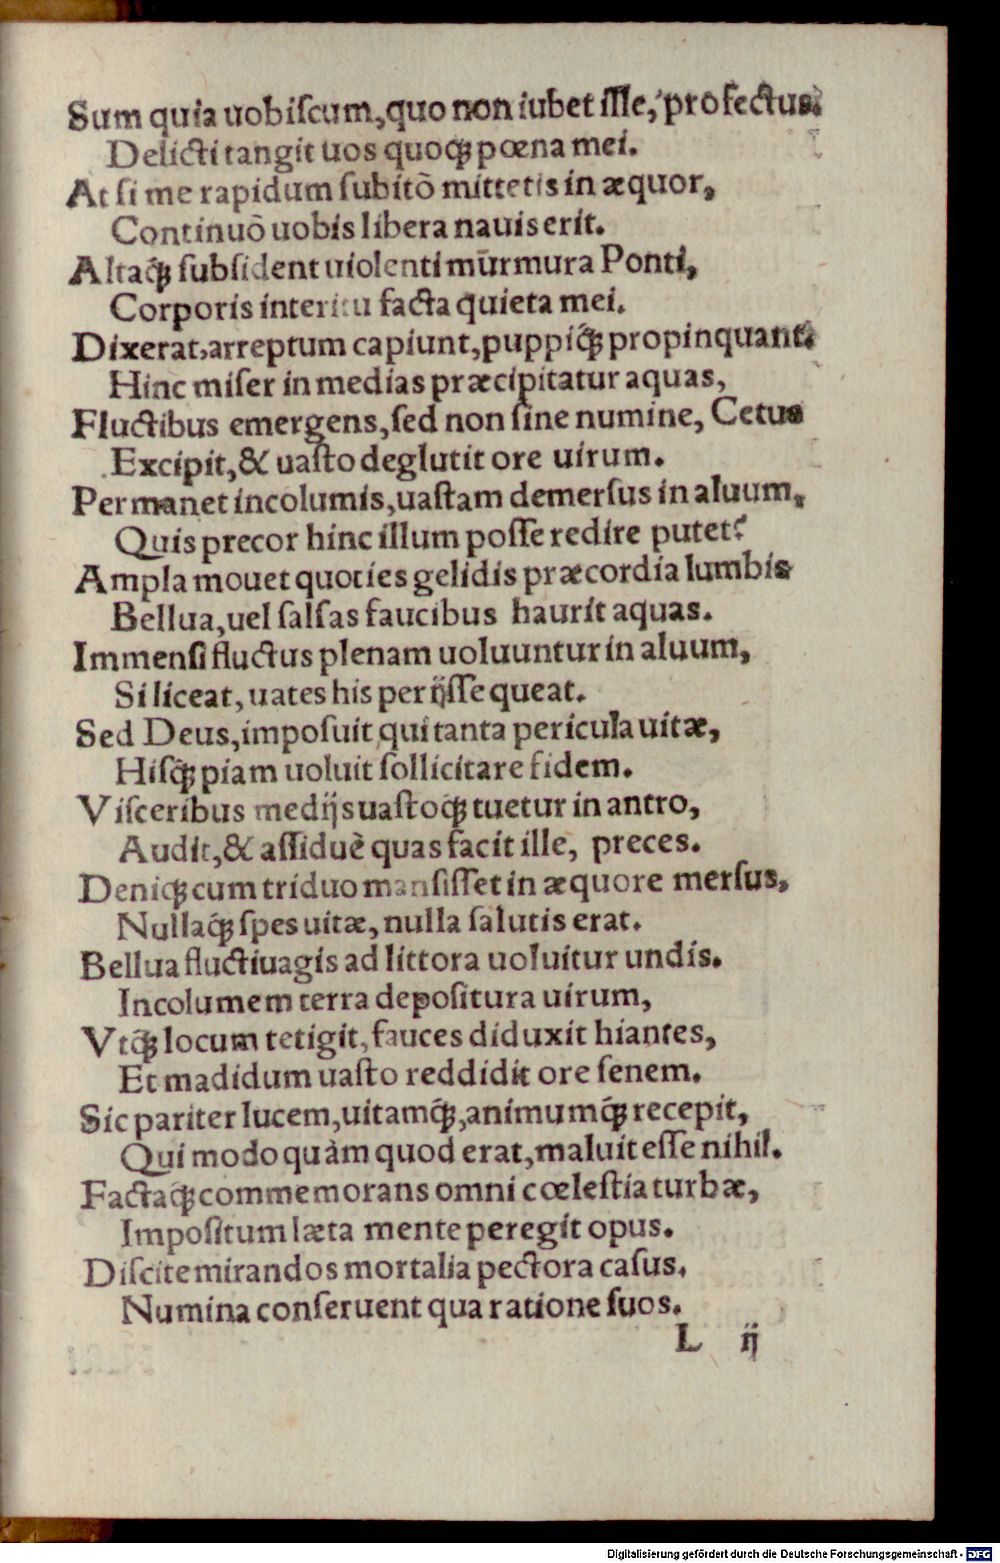 Sum quia uobiſcum, quo non iubet ille, profectus.
Delicti tangit uos quoqꝫ pœna mei.
At ſi me rapidum ſubitò mittetis in æquor,
Continuò uobis libera nauis erit.
Altaqꝫ́ ſubſident uiolenti murmura Ponti,
Corporis interitu facta quieta mei.
Dixerat, arreptum capiunt, puppiqꝫ́ propinquant.
Hinc miſer in medias præcipitatur aquas,
Fluctibus emergens, ſed non ſine numine, Cetus
Excipit, & uaſto deglutit ore uirum.
Permanet incolumis, uaſtam demerſus in aluum,
Quis precor hinc illum poſſe redire putet?
Ampla mouet quoties gelidis præcordia lumbis
Bellua, uel ſalſas faucibus haurit aquas.
Immenſi fluctus plenam uoluuntur in aluum,
Si liceat, uates his perijſſe queat.
Sed Deus, impoſuit qui tanta pericula uitæ,
Hiſqꝫ́ piam uoluit ſollicitare fidem.
Viſceribus medijs uaſtoqꝫ́ tuetur in antro,
Audit, & aſſiduè quas facit ille, preces.
Deniqꝫ cum triduo manſiſſet in æquore merſus,
Nullaqꝫ́ ſpes uitæ, nulla ſalutis erat.
Bellua fluctiuagis ad littora uoluitur undis.
Incolumem terra depoſitura uirum,
Vtqꝫ́ locum tetigit, fauces diduxit hiantes,
Et madidum uaſto reddidit ore ſenem.
Sic pariter lucem, uitamqꝫ́, animumqꝫ́ recepit,
Qui modo quàm quod erat, maluit eſſe nihil.
Factaqꝫ́ commemorans omni cœleſtia turbæ,
Impoſitum læta mente peregit opus.
Diſcite mirandos mortalia pectora caſus.
Numina conſeruent qua ratione ſuos.
L ij
Digitalisierung gefördert durch die Deutsche Forschungsgemeinschaft - DFG